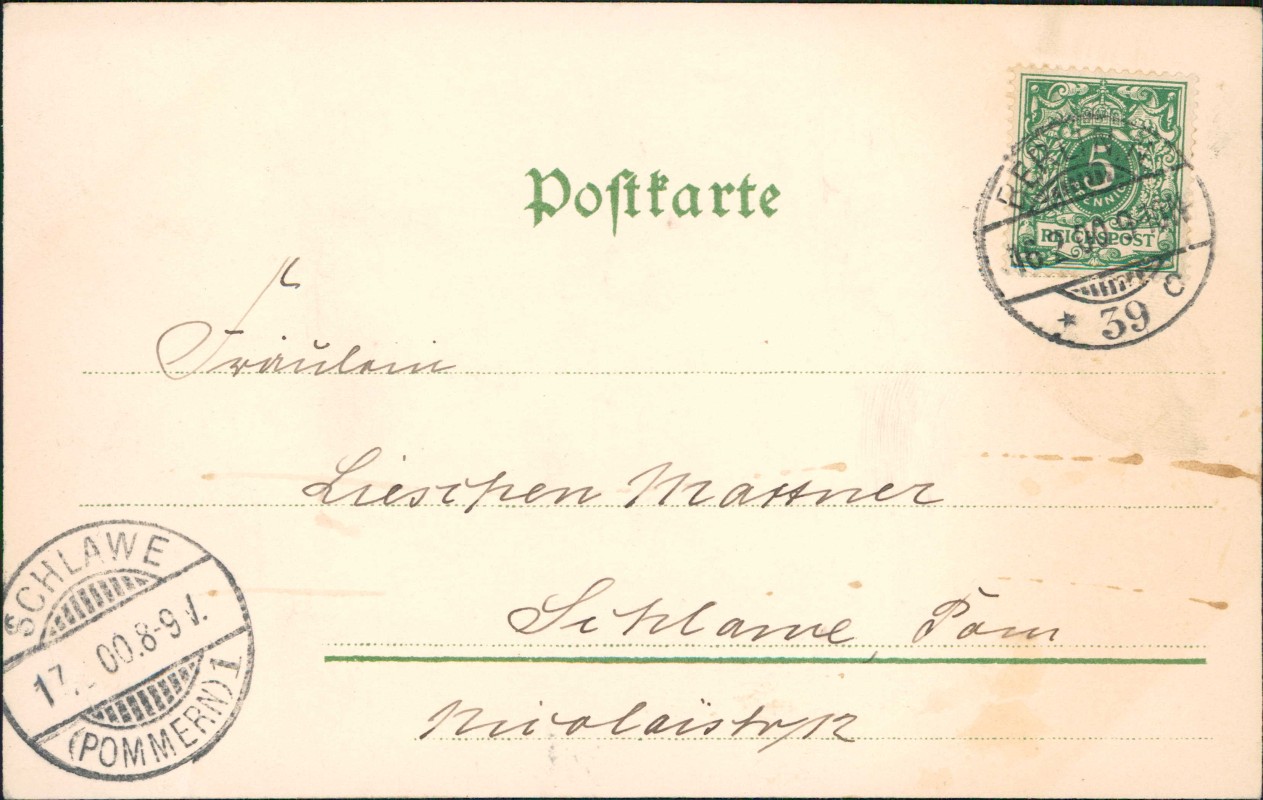 Postkarte
5
PFENNIG
REICHSPOST
BERLIN
16.2.00.9-
* 39 c
Fräulein
Lieschen Mattner
Schlawe, Pom
Nicolaistr
SCHLAWE
17. .00.8-9V.
(POMMERN) 1